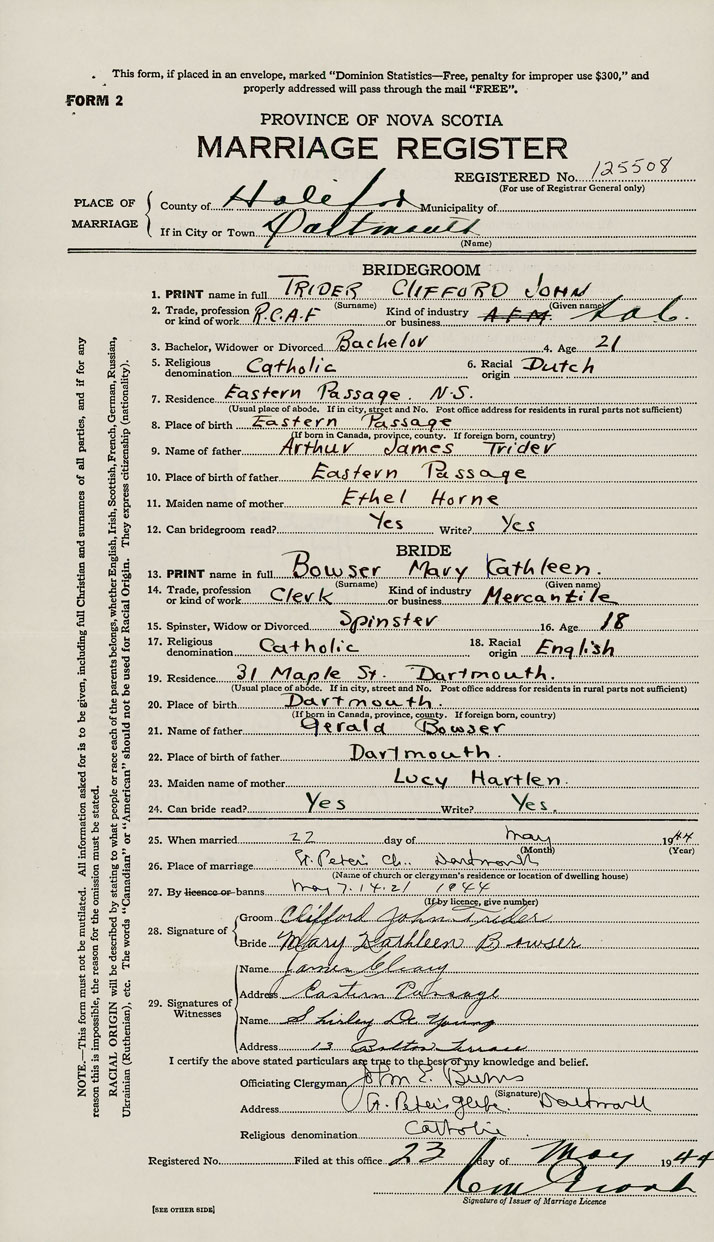 This form, if placed in an envelope, marked "Dominion Statistics—Free, penalty for improper use $300," and
properly addressed will pass through the mail "FREE".
FORM 2
PROVINCE OF NOVA SCOTIA
MARRIAGE REGISTER
REGISTERED No. 125508
(For use of Registrar General only)
PLACE OF MARRIAGE
County of Halifax Municipality of
If in City or Town Dartmouth
(Name)
BRIDEGROOM
1. PRINT name in full TRIDER CLIFFORD JOHN
(Surname) (Given name)
2. Trade, profession or kind of work R.C.A.F Kind of industry or business A.F.M.
3. Bachelor, Widower or Divorced Bachelor 4. Age 21
5. Religious denomination Catholic 6. Racial origin Dutch
7. Residence Eastern Passage. N.S.
(Usual place of abode. If in city, street and No. Post office address for residents in rural parts not sufficient)
8. Place of birth Eastern Passage
(If born in Canada, province, county. If foreign born, country)
9. Name of father Arthur James Trider
10. Place of birth of father Eastern Passage
11. Maiden name of mother Ethel Horne
12. Can bridegroom read? Yes Write? Yes
BRIDE
13. PRINT name in full Bowser Mary Kathleen.
(Surname) (Given name)
14. Trade, profession or kind of work Clerk Kind of industry or business Mercantile
15. Spinster, Widow or Divorced Spinster 16. Age 18
17. Religious denomination Catholic 18. Racial origin English
19. Residence 31 Maple St. Dartmouth.
(Usual place of abode. If in city, street and No. Post office address for residents in rural parts not sufficient)
20. Place of birth Dartmouth.
(If born in Canada, province, county. If foreign born, country)
21. Name of father Gerald Bowser
22. Place of birth of father Dartmouth.
23. Maiden name of mother Lucy Hartlen.
24. Can bride read? Yes Write? Yes.
25. When married 22 day of May 1944
(Month) (Year)
26. Place of marriage St. Peter's Ch.. Dartmouth
(Name of church or clergyman's residence or location of dwelling house)
27. By licence or banns May 7. 14. 21 1944
(If by licence, give number)
28. Signature of
Groom Clifford John Trider
Bride Mary Kathleen Bowser
29. Signatures of Witnesses
Name James Cleary
Address Eastern Passage
Name Shirley De Young
Address 13 Bolton Terrace
I certify the above stated particulars are true to the best of my knowledge and belief.
Officiating Clergyman John E. Burns
(Signature)
Address St. Peter's Glebe. Dartmouth
Religious denomination Catholic
Registered No. Filed at this office 23 day of May 1944
Signature of Issuer of Marriage Licence
[SEE OTHER SIDE]
NOTE.—This form must not be mutilated. All information asked for is to be given, including full Christian and surnames of all parties, and if for any
reason this is impossible, the reason for the omission must be stated.
RACIAL ORIGIN will be described by stating to what people or race each of the parents belongs, whether English, Irish, Scottish, French, German, Russian,
Ukrainian (Ruthenian), etc. The words "Canadian" or "American" should not be used for Racial Origin. They express citizenship (nationality).